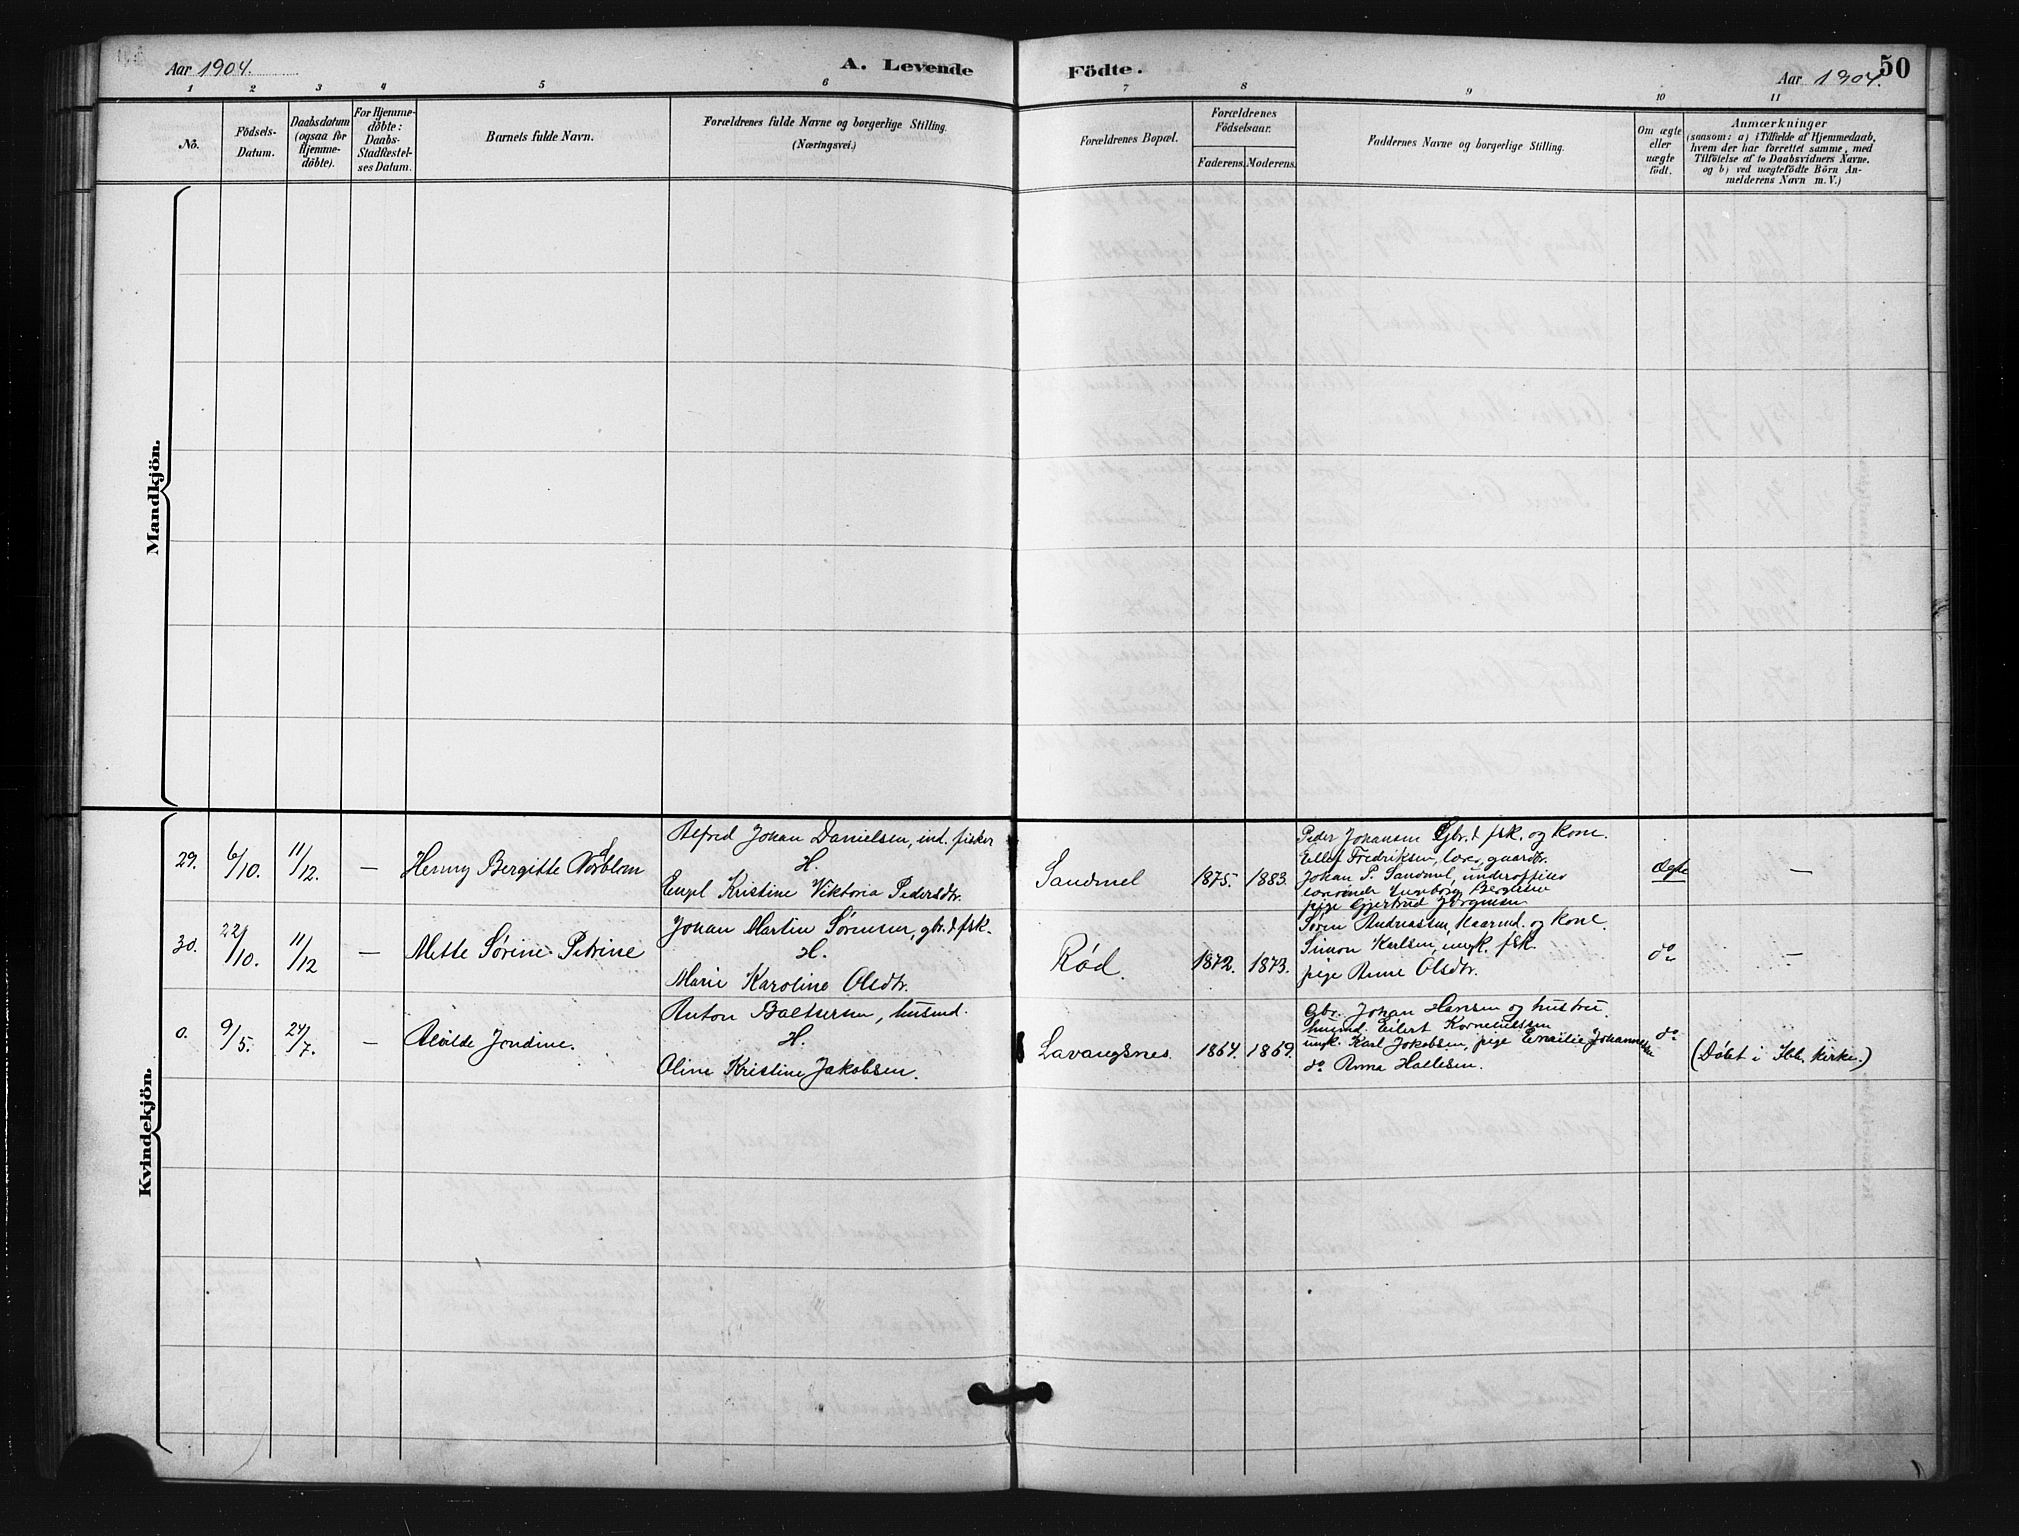 Aar 1904.
A. Levende
Födte.
Aar 1904.
50
1 2 3 4 5 6 7 8 9 10 11
No.
Födsels-
Datum.
Daabsdatum
(ogsaa for
Hjemme-
döbte).
For Hjemme-
döbte:
Daabs-
Stadfæstel-
ses Datum.
Barnets fulde Navn.
Forældrenes fulde Navne og borgerlige Stilling.
(Næringsvei.)
Forældrenes Bopæl.
Forældrenes
Födselsaar.
Faderens. Moderens.
Faddernes Navne og borgerlige Stilling.
Om ægte
eller
uægte
födt.
Anmærkninger
(saasom: a) i Tilfælde af Hjemmedaab,
hvem der har forrettet samme, med
Tilföielse af to Daabsvidners Navne.
og b) ved uægtefödte Börn An-
melderens Navn m. V.)
Mandkjön.
Kvindekjön.
29. 6/10. 11/12. — Henny Bergitte Nordblom
Alfred Johan Danielsen, ind. fisker
H.
Engel Kristine Viktoria Pedersdtr.
Sandmel 1875. 1883.
Peder Johansen Gbr. & fsk. og kone.
Ellef Fredriksen, gaardbr.
Johan P. Sandmel, underofficer
Ingeborg Bergitte
pige Gjertrud Jörginsen
ægte —
30. 22/10. 11/12 — Mette Sørine Petrine
Johan Martin Sørensen, gbr. & fsk.
H.
Marie Karoline Olsdtr.
Rød. 1872. 1873.
Søren Andreassen, Kaarmd. og kone.
Simon Karlsen, ungk. fsk.
pige Anne Olsdtr.
do —
0. 9/5. 24/7. — Alvilde Jondine.
Anton Baltsersen, husmd.
H.
Oline Kristine Jakobsen.
Lavangsnes 1864. 1869.
Gbr. Johan Hansen og hustru.
husmd. Eilert Korneliussen
ungk. Karl Jakobsen, pige Emilie Johannesen
do Anna Hallesen.
do
(Døbt i Ibb. kirke.)